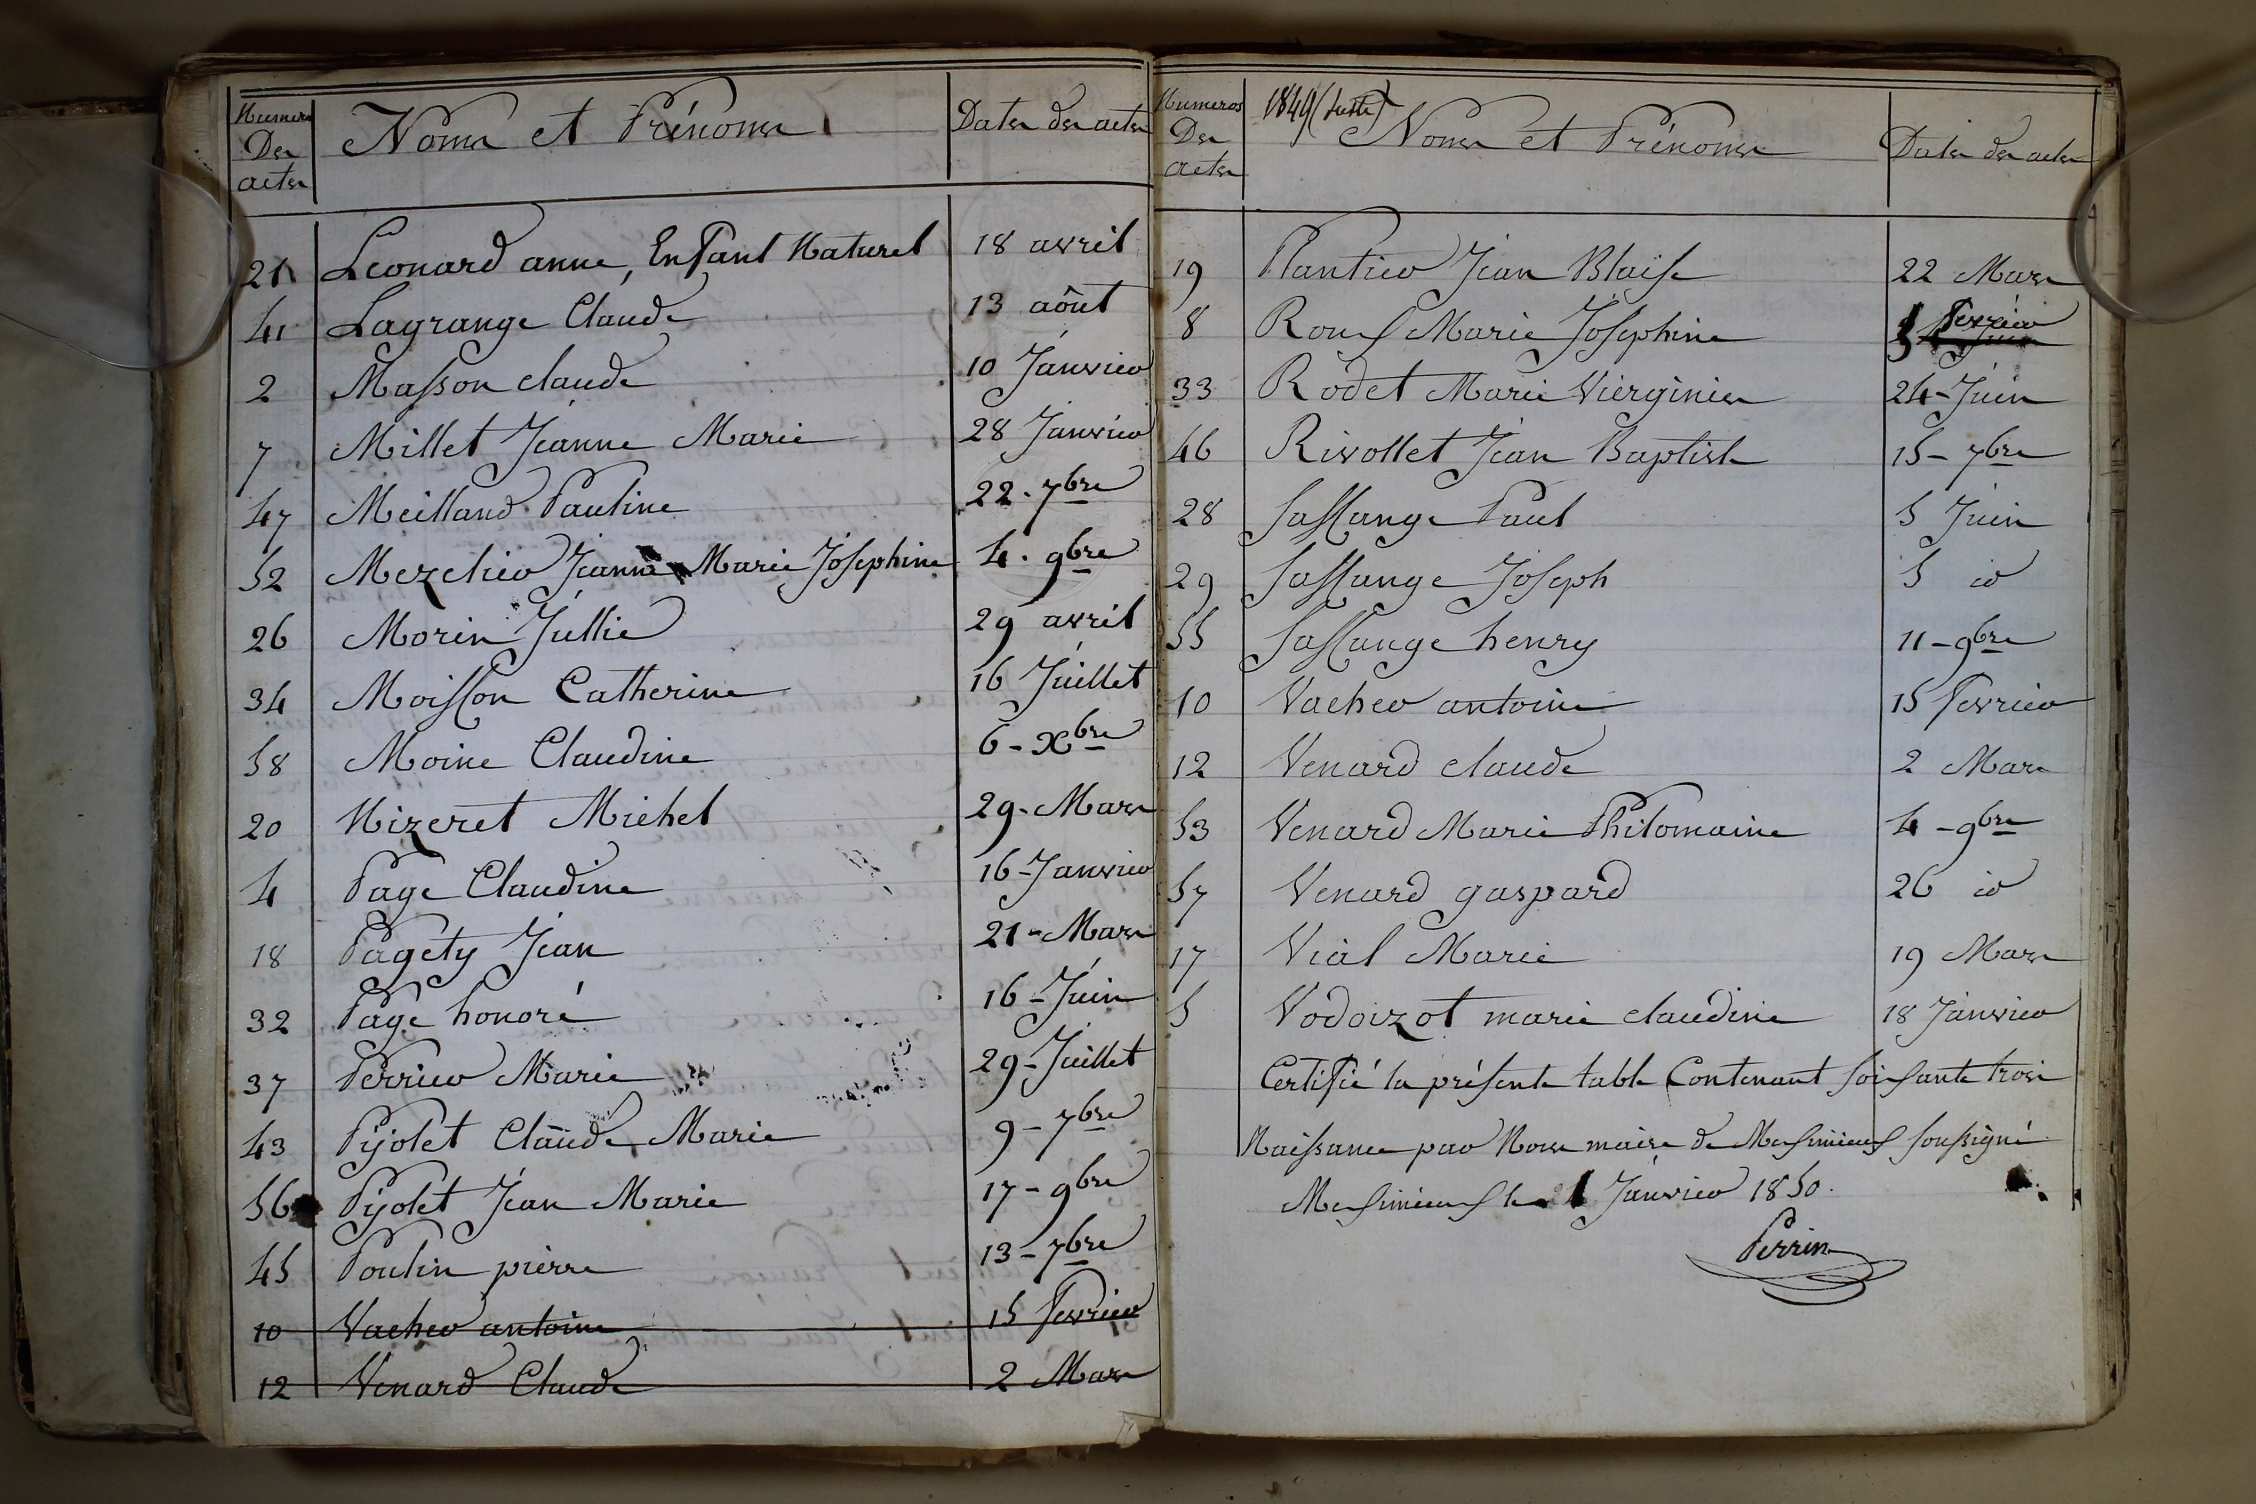 Numeros Des actes | Noms et Prénoms | Dates des actes
21 Leonard anne, Enfant Naturel 18 avril
41 Lagrange Claude 13 aôut
2 Masson claude 10 Janvier
7 Millet Jeanne Marie 28 Janvier
47 Meilland Pauline 22. 7bre
52 Mezelier Jeanne Marie Josephine 4. 9bre
26 Morin Jullie 29 avril
34 Moisson Catherine 16 Juillet
58 Moine Claudine 6 - Xbre
20 Nizeret Michel 29 - Mars
4 Page Claudine 16 - Janvier
18 Pagety Jean 21 - Mars
32 Page honoré 16 - Juin
37 Perrier Marie 29 - Juillet
43 Pijolet Claude Marie 9 - 7bre
56 Pijolet Jean Marie 17 - 9bre
45 Poulin pierre 13 - 7bre
10 Vacher antoine 15 Fevrier
12 Venard Claude 2 Mars
1849 (suite)
Numeros Des actes | Noms et Prénoms | Dates des actes
19 Plantier Jean Blaise 22 Mars
8 Marie Josephine Fevrier
33 Rodet Marie Vierginies 24 - Juin
46 Rivollet Jean Baptiste 15 - 7bre
28 Sassange Paul 5 Juin
29 Sassange Joseph 5 id
55 Sassange henry 11 - 9bre
10 Vacher antoine 15 Fevrier
12 Venard claude 2 Mars
53 Venard Marie Philomaine 4 - 9bre
57 Venard gaspard 26 id
17 Vial Marie 19 Mars
5 Vodoizot marie claudine 18 Janvier
Certifié la présente table Contenant soixante trois
Naissance par Nous maire de Messimieux soussigné
Messimieux le 1 Janvier 1850.
Perrin